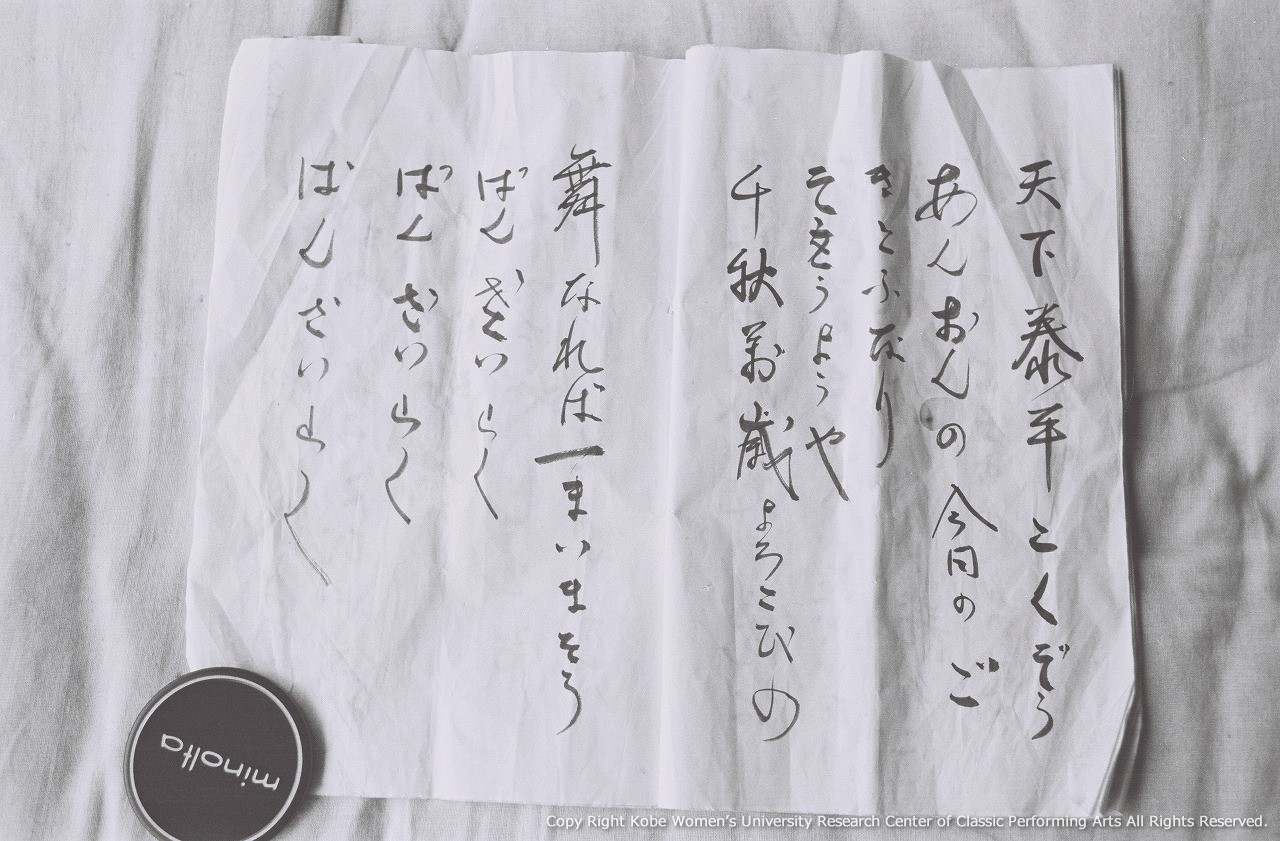 天下泰平こくぞう
あんおんの今日のご
きとふなり
ようや
千秋萬歳よろこびの
舞なれば一まいまそう
ばんざいらく
ばんざいらく
ばんざいらく
minolta
Copy Right Kobe Women's University Research Center of Classic Performing Arts All Rights Reserved.